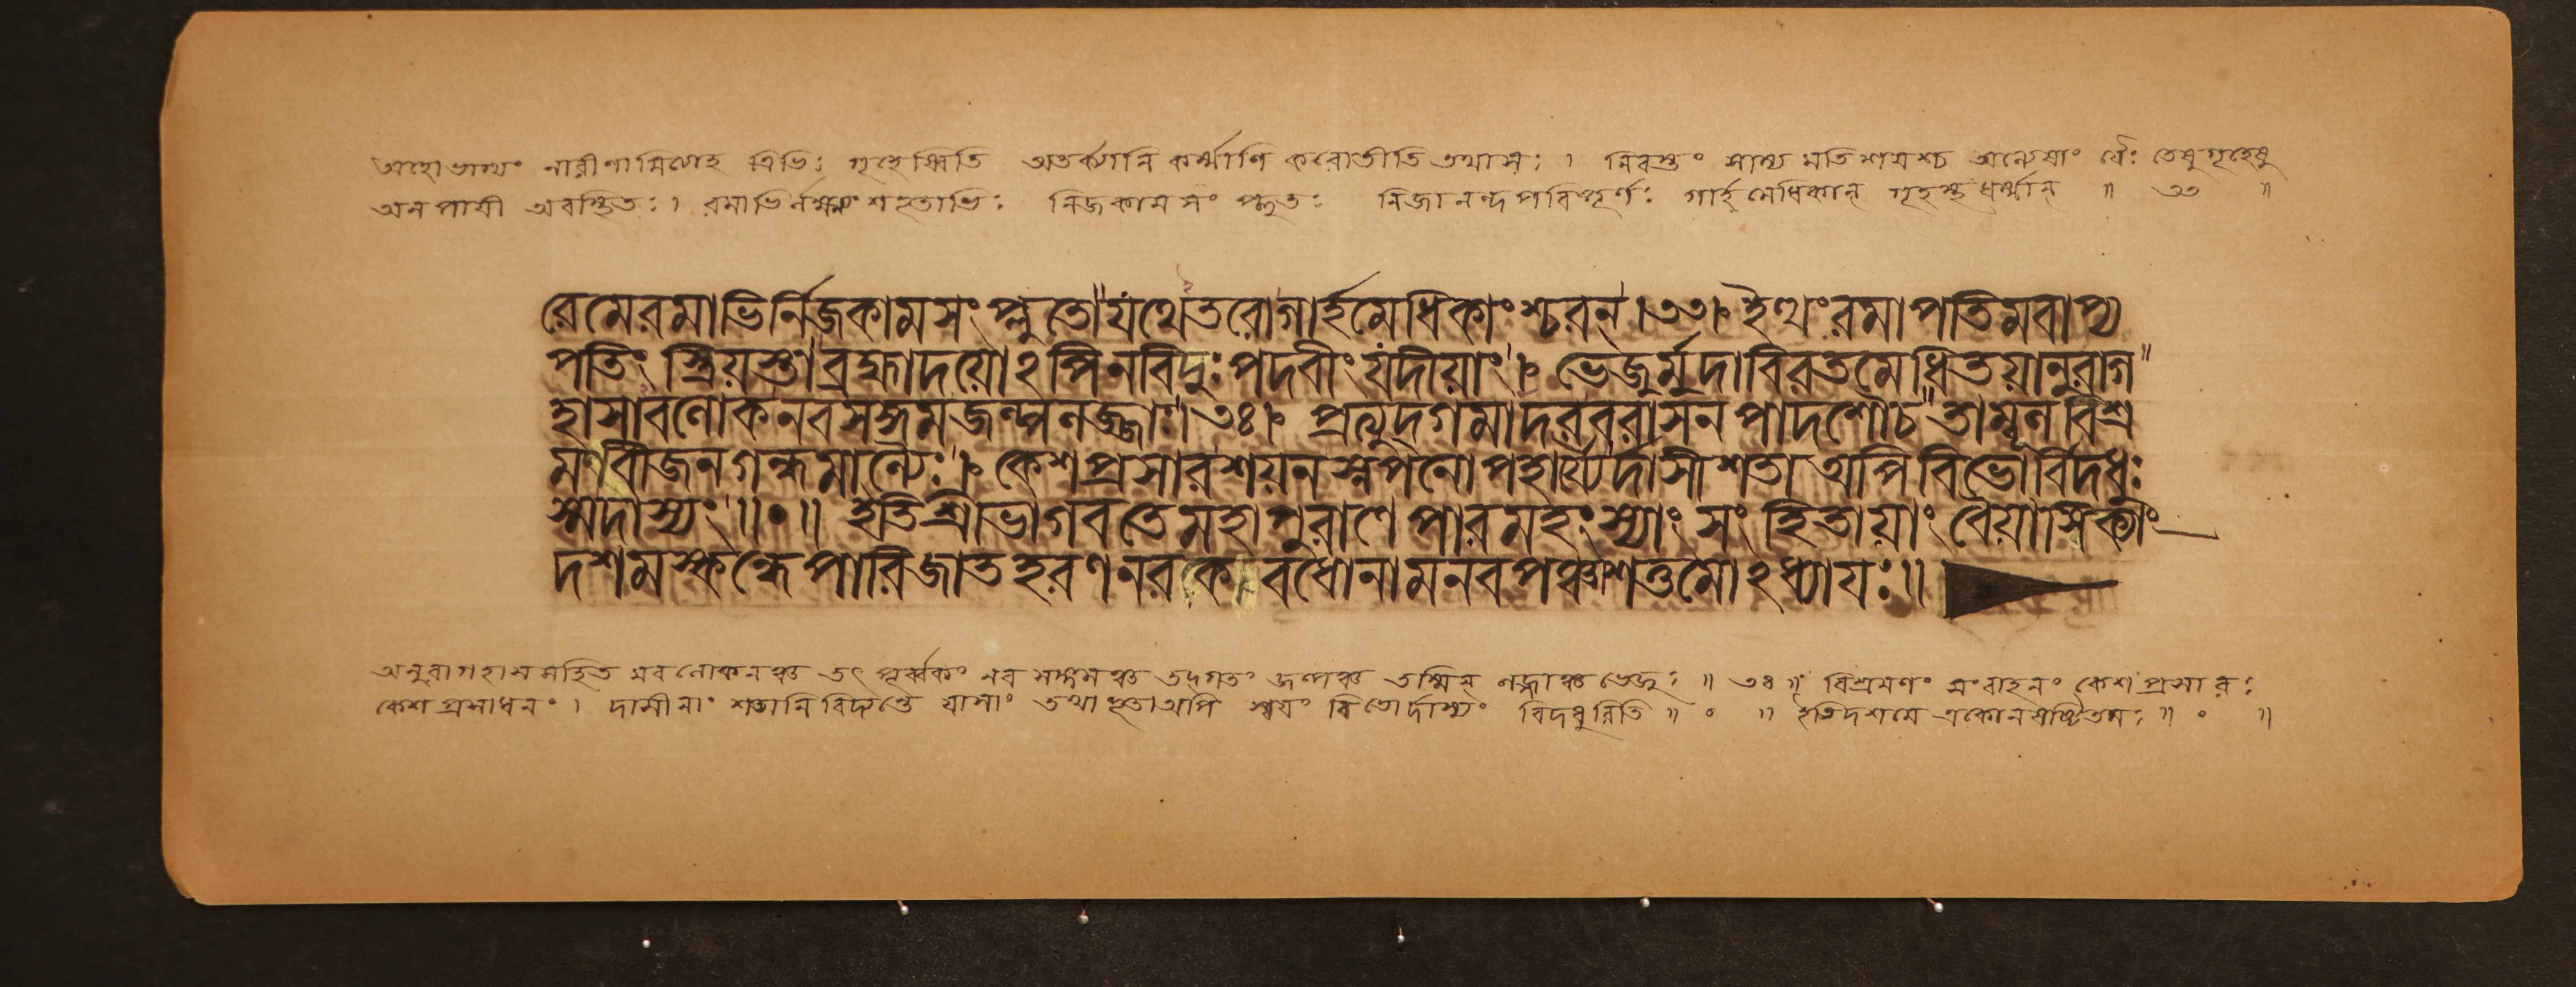 অহোভাগ্যং নারীণামিত্যাহ ত্রিভিঃ গৃহেষ্বিতি অতর্ক্যানি কর্ম্মাণি করোতীতি তথা সঃ । নিরস্তং সাম্য মতিশয়শ্চ অন্যেষাং যৈঃ তেষু গৃহেষু
অনপায়ী অবস্থিতঃ । রমাভির্লক্ষ্ম্যংশভূতাভিঃ নিজকামসংপ্লুতঃ নিজানন্দপরিপূর্ণঃ গার্হমেধিকান্ গৃহস্থধর্ম্মান্ ॥ ৩৩ ॥
রেমেরমাভির্নিজকামসংপ্লুতো"যথেতরোগার্হমেধিকাংশ্চরন্ ।৩৩। ইত্থংরমাপতিমবাপ্য
পতিং স্ত্রিয়স্তাব্রহ্মাদয়োঽপিনবিদুঃপদবীংযদীয়াং । ভেজুর্মুদাবিরতমেধিতয়ানুরাগ"
হাসাবলোকনবসঙ্গমজল্পলজ্জাঃ।৩৪। প্রত্যুদ্গমাদরবরাসনপাদশৌচ"তাম্বূলবিশ্র
মণবীজনগন্ধমাল্যৈঃ । কেশপ্রসারশয়নস্নপনোপহার্য্যৈর্দাসীশতাঅপিবিভোর্বিদধুঃ
স্মদাস্যং ॥০॥ ইতিশ্রীভাগবতেমহাপুরাণেপারমহংস্যাংসংহিতায়াংবৈয়াসিক্যাং
দশমস্কন্ধেপারিজাতহরণনরকো বধোনামনবপঞ্চাশত্তমোঽধ্যায়ঃ॥
অনুরাগহাসসহিত মবলোকনঞ্চ তৎ পূর্ব্বকং নব সঙ্গমঞ্চ তদ্গতং জল্পঞ্চ তস্মিন্ লজ্জাঞ্চ ভেজুঃ ॥ ৩৪ ॥ বিশ্রমণং সংবাহনং কেশপ্রসারঃ
কেশপ্রসাধনং । দাসীনাং শতানি বিদ্যন্তে যাসাং তথাভূতাঅপি স্বয়ং বিভোর্দাস্যং বিদধুরিতি ॥ ০ ॥ ইতিদশমে একোনষষ্টিতমঃ ॥ ০ ॥